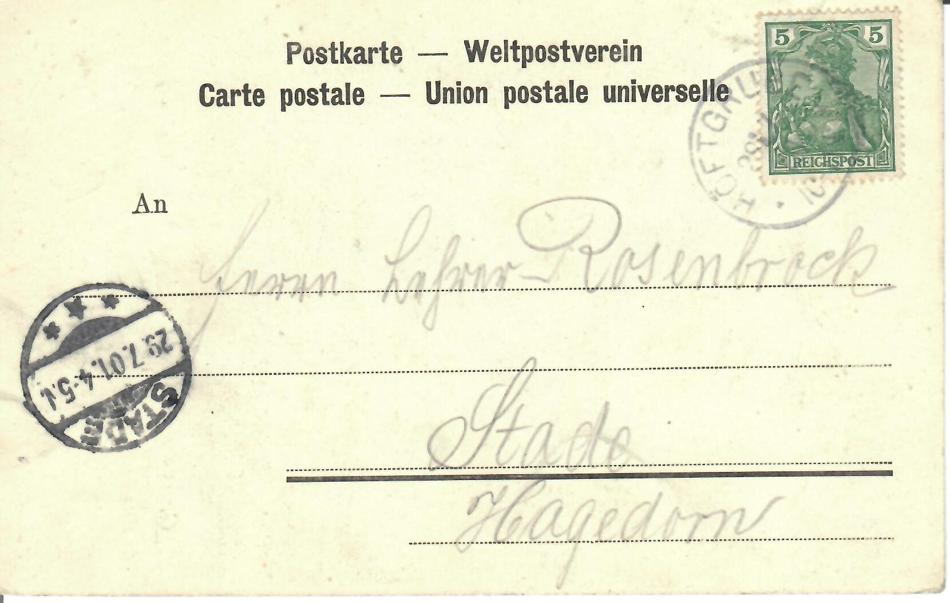 Postkarte — Weltpostverein
Carte postale — Union postale universelle
5 5
REICHSPOST
HÖFTGRUBE
An
Herrn Lehrer Rosenbrock
29.7.01.4-5.N.
STADE
Stade
Hagedorn